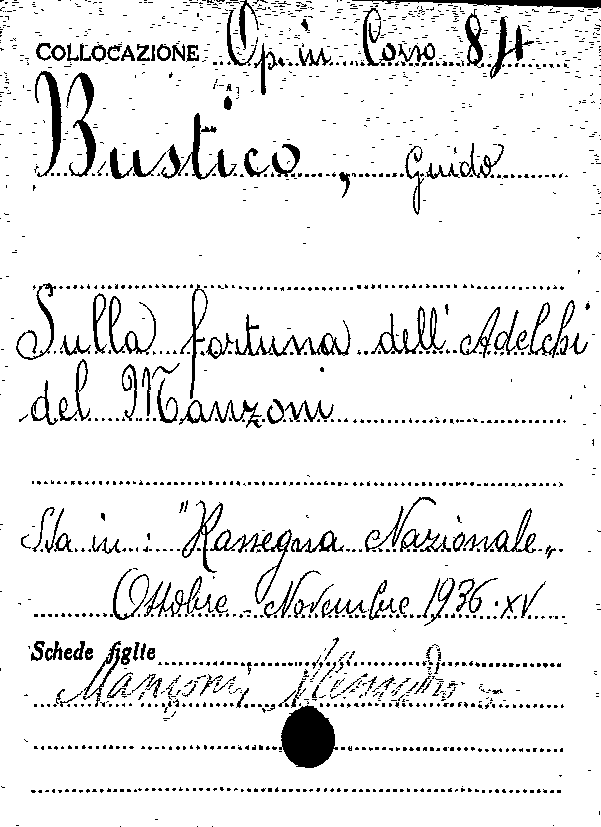 COLLOCAZIONE Op. in Corso 84
Bustico, Guido
Sulla fortuna dell'Adelchi
del Manzoni
Sta in: "Rassegna Nazionale„
Ottobre - Novembre 1936 - XV
Schede figlie
Manzoni, Alessandro